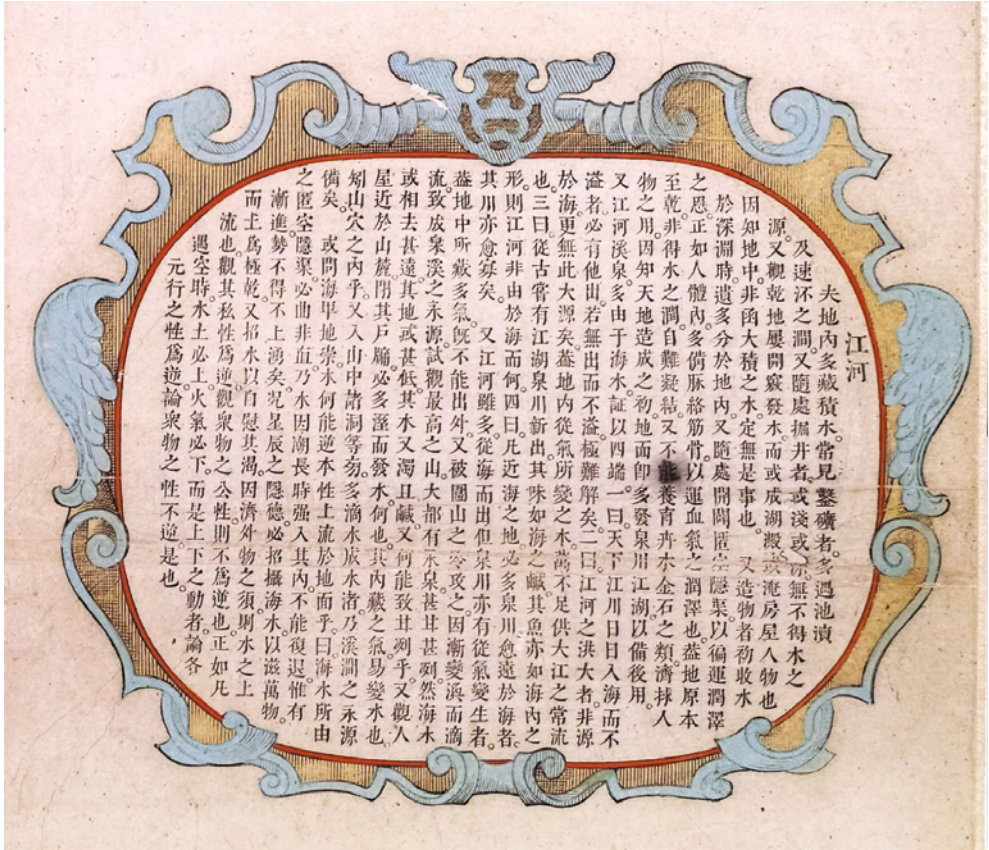 江河
夫地內多藏積水。常見鑿礦者。多過池瀆
及速汱之澗。又隨處掘井者。或淺或深無不得水之
源。又觀乾地屢開裂發水。而或成湖澱或淹房屋人物也
因知地中。非函大積之水。定無是事也 又造物者初收水
於深淵時。遺多分於地內。又隨處開闊匿空隱渠。以徧運潤澤
之恩。正如人體內。多備脉絡筋骨。以運血氣之潤澤也。葢地原本
至乾。非得水之潤。自難凝結。又不能養育卉木金石之類。濟捄人
物之用。因知天地造成之初。地面卽多發泉川江湖。以備後用。
又江河溪泉。多由于海水。証以四端。一曰。天下江川。日日入海而不
溢者。必有他出。若無出而不溢。極難解矣。二曰。江河之洪大者。非源
於海。更無此大源矣。葢地內從氣所變之水。萬不足供大江之常流
也。三曰。從古嘗有江湖泉川新出。其味如海之鹹。其魚亦如海內之
形。則江河非由於海而何。四曰。凡近海之地。必多泉川。愈遠於海者。
其川亦愈寡矣。 又江河雖多從海而出。但泉川亦有從氣變生者。
葢地中所藏多氣。旣不能出外。又被圍山之冷攻之。因漸變浜而滴
流。致成衆溪之永源。試觀最高之山。大都有永泉。甚甘甚冽。然海水
或相去甚遠。其地或甚低。其水又濁且鹹。又何能致甘冽乎。又觀人
屋近於山麓。閉其戶牖。必多溼而發水。何也。其內藏之氣。易變水也。
矧山穴之內乎。又入山中諸洞等穷。多滴水成水渚。乃溪澗之永源
備矣。 或問海卑地崇。水何能逆本性。上流於地面乎。曰。海水所由
之匿空隱渠。必曲非直。乃水因潮長時。强入其內。不能復退。惟有
漸進。勢不得不上湧矣。况星辰之隱德。必招攝海水。以滋萬物。
而土爲極乾。又招水以自慰其渴。因濟外物之須。則水之上
流也。觀其私性爲逆。觀衆物之公性。則不爲逆也。正如凡
遇空時。水土必上。火氣必下。而是上下之動者。論各
元行之性爲逆。論衆物之性不逆是也。